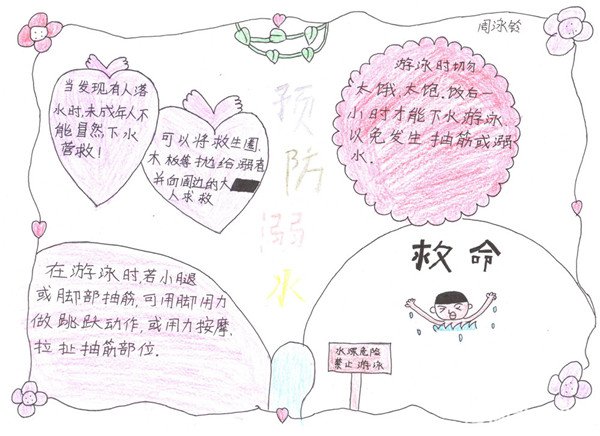 周泳铃
预
防
溺
水
当发现有人落
水时,未成年人不
能冒然下水
营救!
可以将救生圈、
木板等抛给溺者
并向周边的大
人求救
游泳时切勿
太饿,太饱.饭后一
小时才能下水游泳
以免发生抽筋或溺
水.
在游泳时,若小腿
或脚部抽筋,可用脚用力
做跳跃动作,或用力按摩、
拉扯抽筋部位.
救命
水深危险
禁止游泳